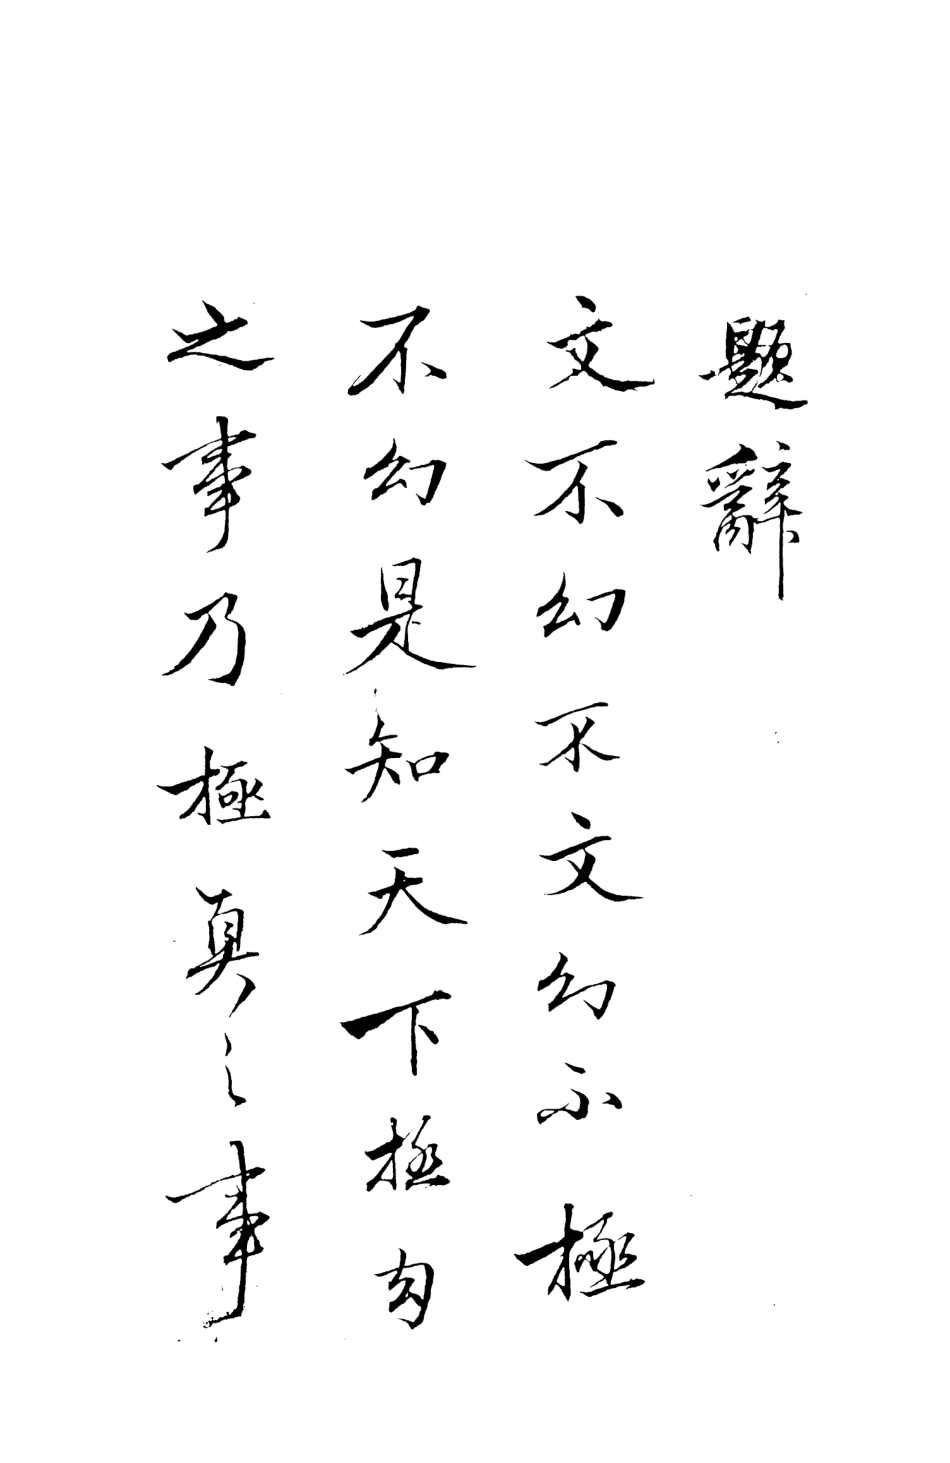 題辭
文不幻不文幻不極
不幻是知天下極幻
之事乃極真之事